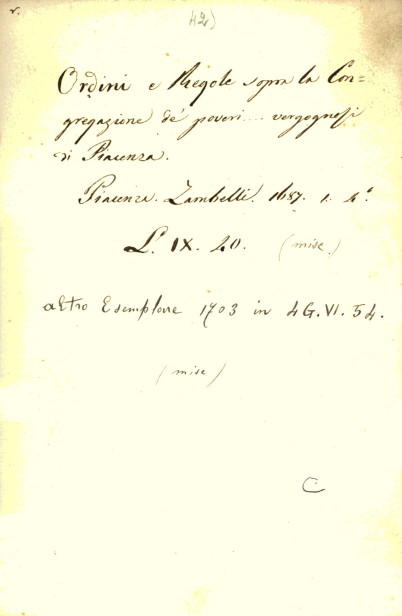 v.
42)
Ordini e Regole sopra la Con=
gregazione de' poveri ... vergognosi
di Piacenza.
Piacenza. Zambelli. 1687. 1. 4°.
L. IX. 20. (misc.)
altro Esemplare 1703 in 4G. VI. 54.
(misc)
C